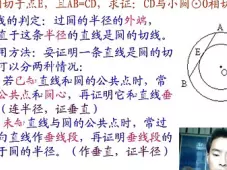 切于点E,且AB=CD,求证:CD与小圆⊙O相切
线的判定:过圆的半径的外端,
直于这条半径的直线是圆的切线。
用方法:要证明一条直线是圆的切
可以分两种情况:
若已知直线和圆的公共点时,常
公共点和圆心,再证明它和直线垂
(连半径,证垂直)
未知直线与圆的公共点时,常过
向直线作垂线段,再证明垂线段的
于圆的半径。(作垂直,证半径)
A
E
B
O